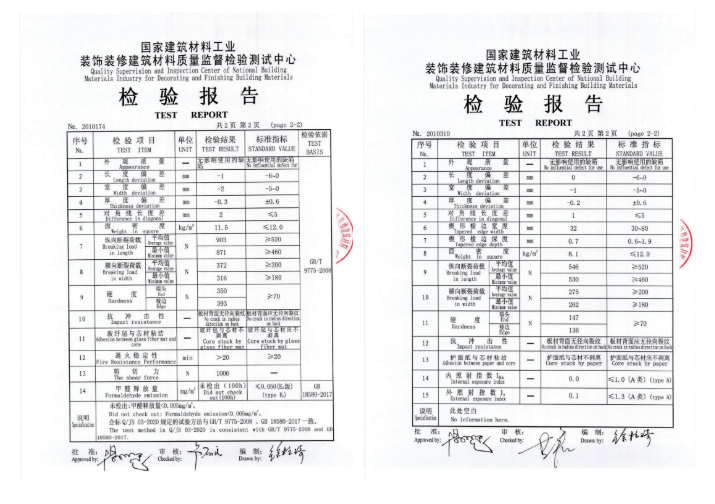 国家建筑材料工业
装饰装修建筑材料质量监督检验测试中心
Quality Supervision and Inspection Center of National Building
Materials Industry for Decorating and Finishing Building Materials
检 验 报 告
TEST REPORT
№. 2010174 共2页 第2页 (page 2-2)
序号 No. 检 验 项 目 TEST ITEM 单位 UNIT 检验结果 TEST RESULT 标准指标 STANDARD VALUE 检验依据 TEST BASIS
1 外 观 质 量 Appearance — 无影响使用的缺陷 无影响使用的缺陷 No influential defect for
2 长 度 偏 差 Length deviation mm -1 -6~0
3 宽 度 偏 差 Width deviation mm -2 -5~0
4 厚 度 偏 差 Thickness deviation mm -0.3 ±0.6
5 对 角 线 长 度 差 Difference in diagonal mm 2 ≤5
6 面 密 度 Weight in square kg/m² 11.5 ≤12.0
7 纵向断裂荷载 Breaking load in length 平均值 Average value N 903 ≥520
最小值 Minimum value 871 ≥460
8 横向断裂荷载 Breaking load in width 平均值 Average value N 372 ≥200
最小值 Minimum value 316 ≥180
GB/T 9775-2008
9 硬 度 Hardness 端头 End N 350 ≥70
棱边 Edge 393
10 抗 冲 击 性 Impact resistance — 板材背面无径向裂纹 No crack in radius direction on back 板材背面应无径向裂纹 No crack in radius direction on back
11 玻纤毡与芯材粘结 Adhesion between glass fiber mat and core — 玻纤毡与芯材不剥离 Core stuck by glass fiber mat 玻纤毡与芯材应不剥离 Core stuck by glass fiber mat
12 遇火稳定性 Fire Resistance Performance min >20 ≥20
13 剪 切 力 The shear force N 1006 —
14 甲醛释放量 Formaldehyde emission mg/m³ 未检出 (100h) Did not check out(100h) ≤0.050(E₀级) (type E₀) GB 18580-2017
说明 Specification 未检出:甲醛释放量<0.005mg/m³。
Did not check out: Formaldehyde emission<0.005mg/m³.
企标Q/JS 03-2020规定的试验方法与GB/T 9775-2008 、GB 18580-2017一致。
The test method in Q/JS 03-2020 is consistent with GB/T 9775-2008 and GB
18580-2017.
批 准: Approved by: 审 核: Checked by: 编 制: Drawn by:
国家建筑材料工业
装饰装修建筑材料质量监督检验测试中心
Quality Supervision and Inspection Center of National Building
Materials Industry for Decorating and Finishing Building Materials
检 验 报 告
TEST REPORT
№. 2010310 共2页 第2页 (page 2-2)
序号 No. 检 验 项 目 TEST ITEM 单位 UNIT 检 验 结 果 TEST RESULT 标 准 指 标 STANDARD VALUE
1 外 观 质 量 Appearance — 无影响使用的缺陷 No influential defect for use 无影响使用的缺陷 No influential defect for use
2 长 度 偏 差 Length deviation mm 0 -6~0
3 宽 度 偏 差 Width deviation mm -1 -5~0
4 厚 度 偏 差 Thickness deviation mm -0.2 ±0.6
5 对 角 线 长 度 差 Difference in diagonal mm 1 ≤5
6 楔 形 棱 边 宽 度 Tapered edge width mm 32 30~80
7 楔 形 棱 边 深 度 Tapered edge depth mm 0.7 0.6~1.9
8 面 密 度 Weight in square kg/m² 8.1 ≤12.0
9 纵向断裂荷载 Breaking load in length 平均值 Average value N 546 ≥520
最小值 Minimum value 530 ≥460
10 横向断裂荷载 Breaking load in width 平均值 Average value N 275 ≥200
最小值 Minimum value 262 ≥180
11 硬 度 Hardness 端头 End N 147 ≥70
棱边 Edge 136
12 抗 冲 击 性 Impact resistance — 板材背面无径向裂纹 No crack in radius direction on back 板材背面应无径向裂纹 No crack in radius direction on back
13 护面纸与芯材粘结 Adhesion between paper and core — 护面纸与芯材不剥离 Core stuck by paper 护面纸与芯材应不剥离 Core stuck by paper
14 内 照 射 指 数 Internal exposure index — 0.0 ≤1.0 (A类) (type A)
15 外 照 射 指 数 External exposure index — 0.1 ≤1.3 (A类) (type A)
说明 Specification 此处空白
No information here.
批 准: Approved by: 审 核: Checked by: 编 制: Drawn by: